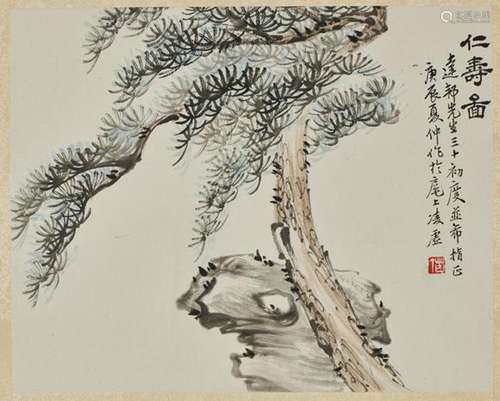 仁壽圖
達邦先生三十初度並希指正
庚辰夏仲作於滬上凌虛